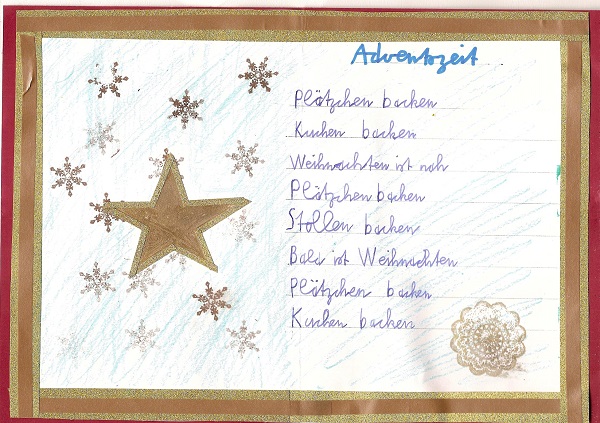 Adventszeit
Plätzchen backen
Kuchen backen
Weihnachten ist nah
Plätzchen backen
Stollen backen
Bald ist Weihnachten
Plätzchen backen
Kuchen backen